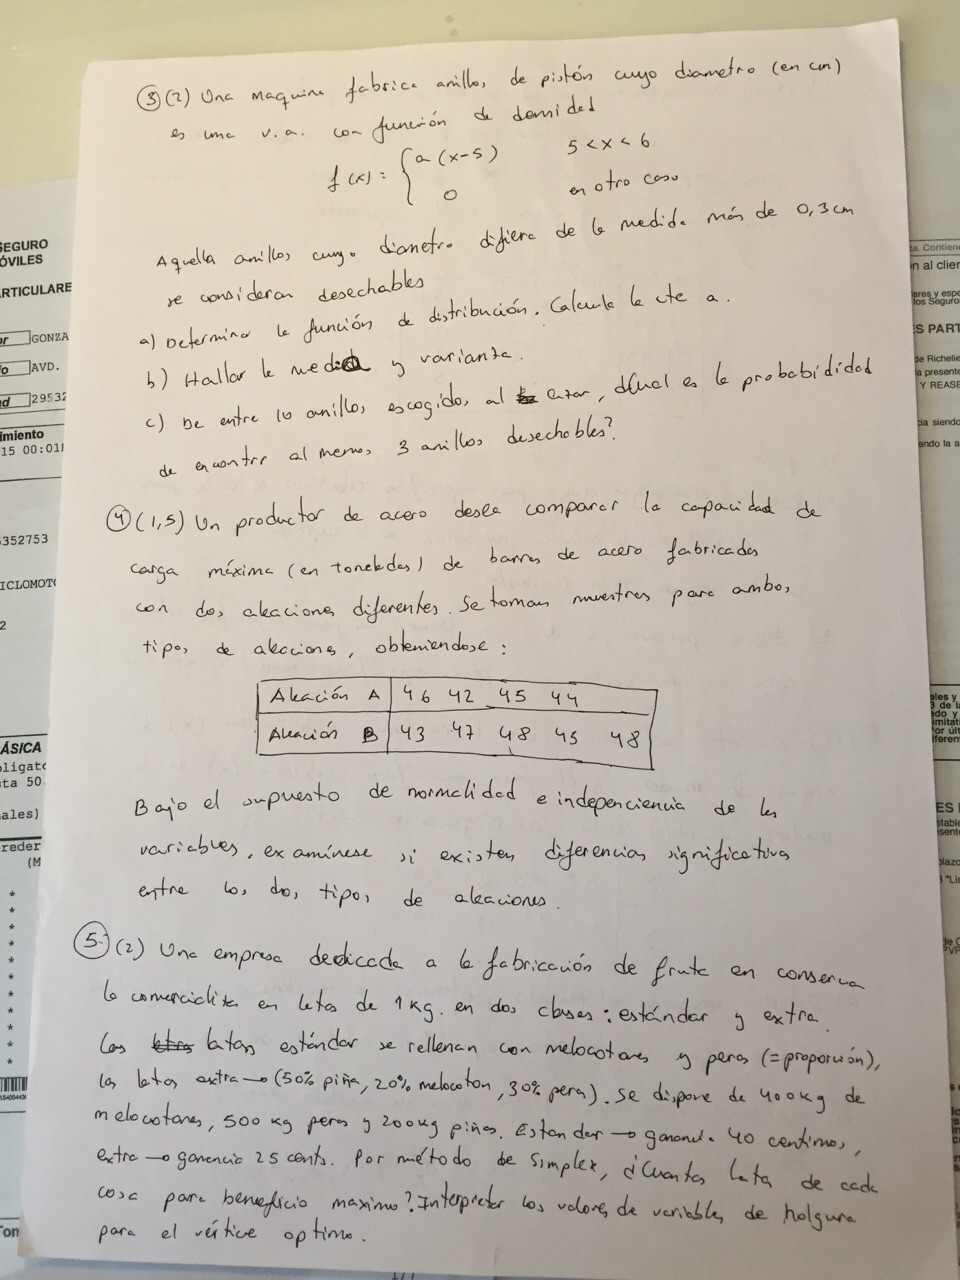 ③ (2) Una maquina fabrica anillos de pistón cuyo diametro (en cm)
es una v.a. con función de densidad
f(x) = { a(x-5) 5 < x < 6
0 en otro caso
Aquellos anillos cuyo diametro difiera de la medida más de 0,3 cm
se consideran desechables
a) Determinar la función de distribución. Calcule la cte a.
b) Hallar la media y varianza.
c) De entre 10 anillos escogidos al azar, ¿Cual es la probabididad
de encontrar al menos 3 anillos desechables?
④ (1,5) Un productor de acero desea comparar la capacidad de
carga máxima (en toneladas) de barras de acero fabricadas
con dos aleaciones diferentes. Se toman muestras para ambos
tipos de aleaciones, obteniendose:
Aleación A 46 42 45 44
Aleación B 43 47 48 45 48
Bajo el supuesto de normalidad e indepenciencia de las
variables, examínese si existen diferencias significativas
entre los dos tipos de aleaciones.
⑤ (2) Una empresa dedicada a la fabricación de fruta en conserva
la comercializa en latas de 1 kg. en dos clases: estándar y extra.
Las latas estándar se rellenan con melocotones y peras (= proporción),
las latas extra → (50% piña, 20% melocoton, 30% pera). Se dispone de 400 kg de
melocotones, 500 kg peras y 200 kg piñas. Estandar → ganancia 40 centimos,
extra → ganancia 25 cents. Por método de Simplex, ¿Cuantas lata de cada
cosa para beneficio maximo? Interpretar los valores de variables de holgura
para el vértice optimo.
SEGURO
ÓVILES
ARTICULARE
GONZA
AVD.
2953
imiento
15 00:01
352753
ICLOMOT
2
ÁSICA
oligato
sta 50
ales)
reder
(M